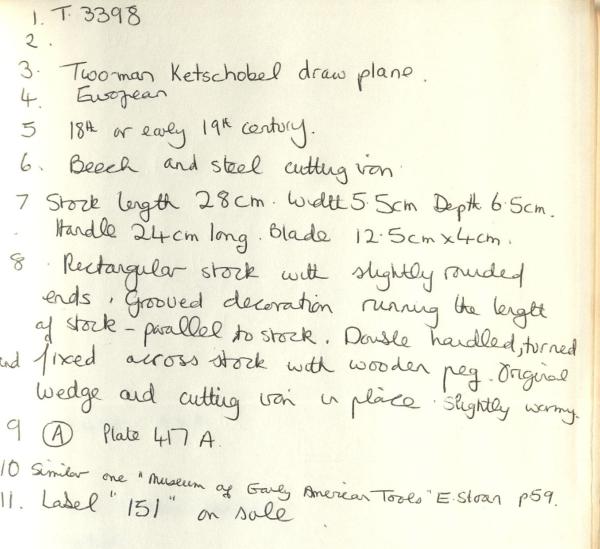 1. T. 3398
2.
3. Two-man Ketschobel draw plane.
4. European
5 18th or early 19th century.
6. Beech and steel cutting iron.
7 Stock length 28cm. Width 5.5cm Depth 6.5cm.
. Handle 24cm long. Blade 12.5cm x 4cm.
8 Rectangular stock with slightly rounded
ends. Grooved decoration running the length
of stock - parallel to stock. Double handled, turned
and fixed across stock with wooden peg. Original
wedge and cutting iron in place. Slightly wormy.
9 (A) Plate 417 A.
10 Similar one "Museum of Early American Tools" E. Sloan p59.
11. Label "151" on sole